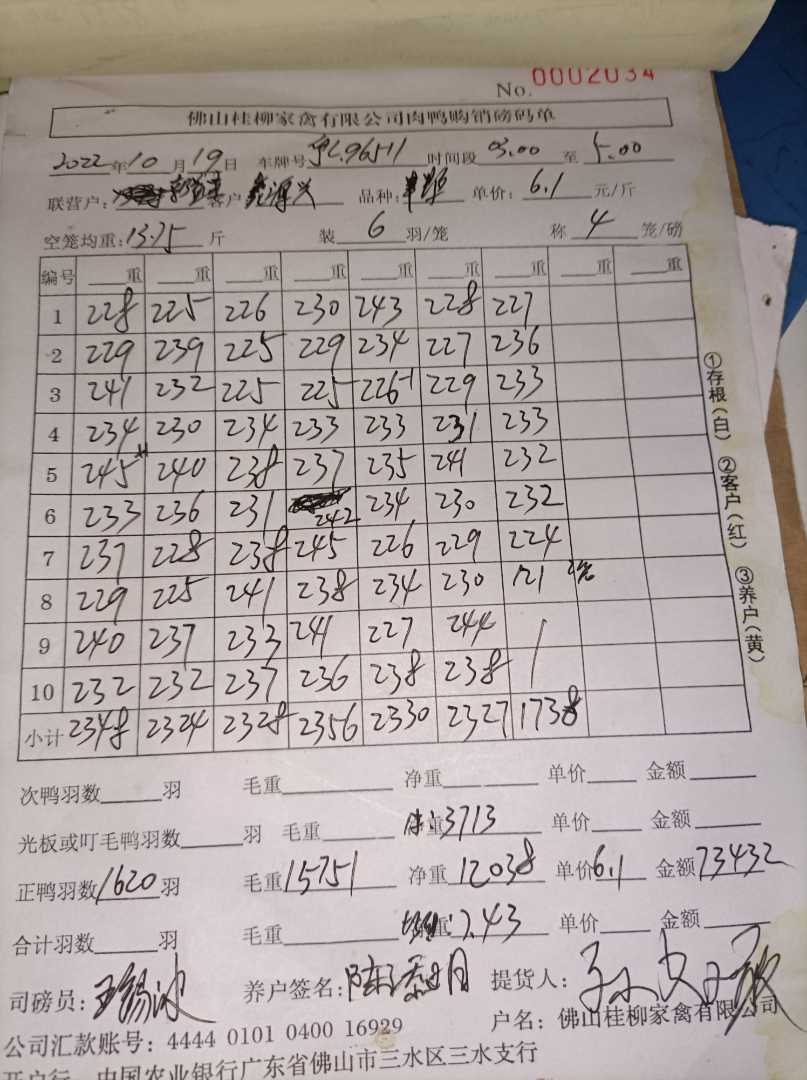 No. 0002034
佛山桂柳家禽有限公司肉鸭购销磅码单
2022年10月19日 车牌号 96511 时间段 03.00 至 5.00
联营户: 客户 鑫源兴 品种: 单价: 6.1 元/斤
空笼均重: 13.75 斤 装 6 羽/笼 称 4 笼/磅
编号 重 重 重 重 重 重 重 重 重
1 228 225 226 230 243 228 227
2 229 239 225 229 234 227 236
3 241 232 225 225 226-1 229 233
4 234 230 234 233 233 231 233
5 245 240 238 237 235 241 232
6 233 236 231 242 234 230 232
7 237 228 238 245 226 229 224
8 229 225 241 238 234 230 121
9 240 237 233 241 227 244
10 232 232 237 236 238 238
小计 2348 2324 2328 2356 2330 2327 1738
①存根(白) ②客户(红) ③养户(黄)
次鸭羽数 羽 毛重 净重 单价 金额
光板或叮毛鸭羽数 羽 毛重 重 3713 单价 金额
正鸭羽数 1620 羽 毛重 15751 净重 12038 单价 6.1 金额 73432
合计羽数 羽 毛重 7.43 单价 金额
司磅员: 王锡冰 养户签名: 提货人:
公司汇款账号: 4444 0101 0400 16929 户名: 佛山桂柳家禽有限公司
开户行 中国农业银行广东省佛山市三水区三水支行